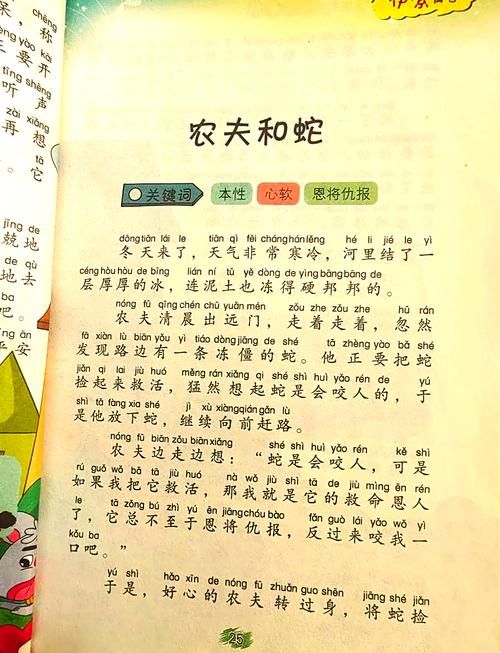 农夫和蛇
关键词 本性 心软 恩将仇报
dōng tiān lái le tiān qì fēi cháng hán lěng hé lǐ jié le yì
冬天来了，天气非常寒冷，河里结了一
céng hòu hòu de bīng lián ní tǔ yě dòng de yìng bāng bāng de
层厚厚的冰，连泥土也冻得硬邦邦的。
nóng fū qīng chén chū yuǎn mén zǒu zhe zǒu zhe hū rán
农夫清晨出远门，走着走着，忽然
fā xiàn lù biān yǒu yì tiáo dòng jiāng de shé tā zhèng yào bǎ shé
发现路边有一条冻僵的蛇。他正要把蛇
jiǎn qǐ lái jiù huó měng rán xiǎng qǐ shé shì huì yǎo rén de yú
捡起来救活，猛然想起蛇是会咬人的，于
shì tā fàng xia shé jì xù xiàng qián gǎn lù
是他放下蛇，继续向前赶路。
nóng fū biān zǒu biān xiǎng shé shì huì yǎo rén kě shì
农夫边走边想：“蛇是会咬人，可是
rú guǒ wǒ bǎ tā jiù huó nà wǒ jiù shì tā de jiù mìng ēn rén
如果我把它救活，那我就是它的救命恩人
le tā zǒng bú zhì yú ēn jiāng chóu bào fǎn guò lái yǎo wǒ yì
了，它总不至于恩将仇报，反过来咬我一
kǒu ba
口吧。”
yú shì hǎo xīn de nóng fū zhuǎn guo shēn jiāng shé jiǎn
于是，好心的农夫转过身，将蛇捡
25